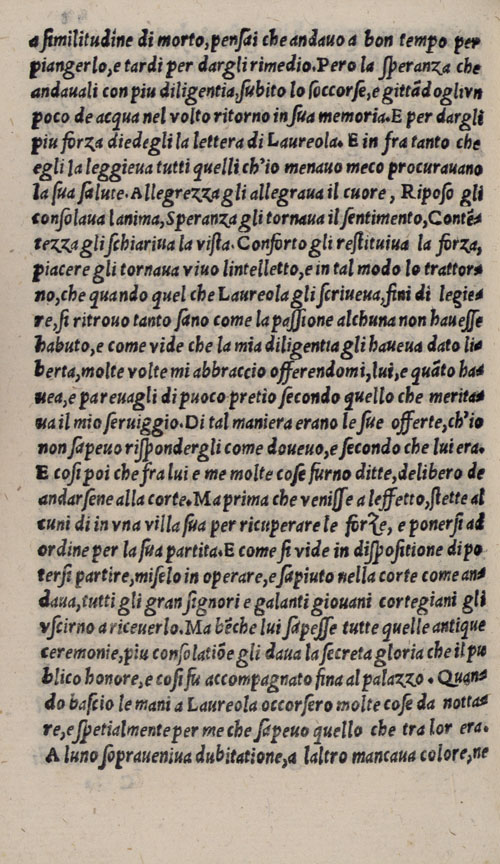 a ſimilitudine di morto,penſai che andauo a bon tempo per
piangerlo,e tardi per dargli rimedio.Pero la ſperanza che
andauali con piu diligentia,ſubito lo ſoccorſe,e gittãdoglivn
poco de acqua nel volto ritorno in ſua memoria.E per dargli
piu forza diedegli la lettera di Laureola. E in fra tanto che
egli la leggieua tutti quelli ch'io menauo meco procurauano
la ſua ſalute.Allegrezza gli allegraua il cuore, Ripoſo gli
conſolaua lanima,Speranza gli tornaua il ſentimento,Contẽ-
tezza gli ſchiariua la viſta.Conforto gli reſtituiua la forza,
piacere gli tornaua viuo lintelletto,e in tal modo lo trattor-
no,che quando quel che Laureola gli ſcriueua,fini di legie-
re,ſi ritrouo tanto ſano come la paſſione alchuna non haueſſe
habuto,e come vide che la mia diligentia gli haueua dato li-
berta,molte volte mi abbraccio offerendomi,lui,e quãto ha-
uea,e pareuagli di puoco pretio ſecondo quello che merita-
ua il mio ſeruiggio.Di tal maniera erano le ſue offerte,ch'io
non ſapeuo riſpondergli come doueuo,e ſecondo che lui era.
E coſi poi che fra lui e me molte coſe furno ditte,delibero de
andarſene alla corte.Ma prima che veniſſe a leffetto,ſtette al
cuni di in vna villa ſua per ricuperare le forze, e ponerſi ad
ordine per la ſua partita.E come ſi vide in diſpoſitione di po
terſi partire,miſelo in operare,e ſapiuto nella corte come an-
daua,tutti gli gran ſignori e galanti giouani cortegiani gli
vſcirno a riceuerlo.Ma bẽche lui ſapeſſe tutte quelle antique
ceremonie,piu conſolatiõe gli daua la ſecreta gloria che il pu
blico honore,e coſi fu accompagnato fina al palazzo. Quan-
do baſcio le mani a Laureola occorſero molte coſe da notta-
re,e ſpetialmente per me che ſapeuo quello che tra lor era.
A luno ſopraueniua dubitatione,a laltro mancaua colore,ne